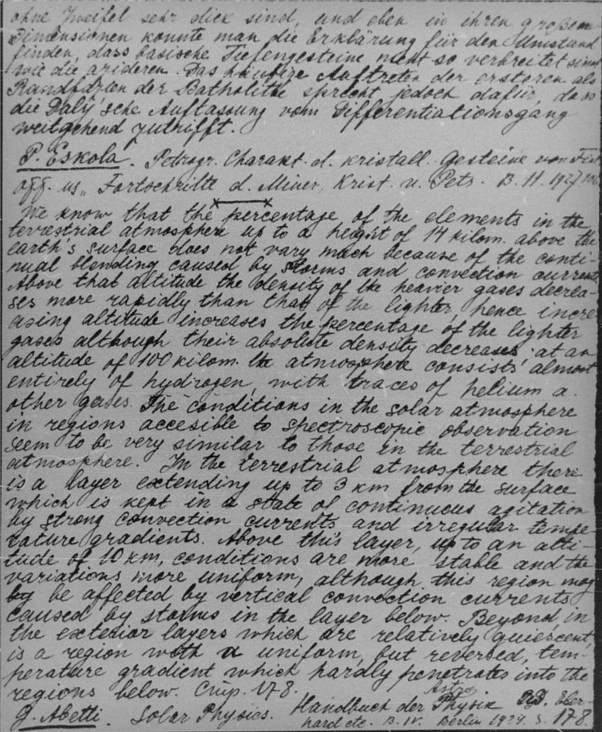 ohne Zweifel sehr dick sind, und eben in ihren großen
Dimensionen konnte man die Erklärung für den Umstand
finden, dass basische Tiefengesteine nicht so verbreitet sind
wie die azideren. Das häufige Auftreten der ersteren als
Randfazien der Batholithe spricht jedoch dafür, dass
die Daly'sche Auffassung vom Differentiationsgang
weitgehend zutrifft.
P. Eskola. Petrogr. Charakt. d. kristall. Gesteine von
Fortschritte d. Miner, Krist. u. Petr. B. 11. 1927
We know that the percentage of the elements in the
terrestrial atmosphere up to a height of 14 kilom. above the
earth's surface does not vary much because of the conti-
nual blending caused by storms and convection currents
Above that altitude the density of the heavier gases decrea-
ses more rapidly than that of the lighter, hence incre-
asing altitude increases the percentage of the lighter
gases although their absolute density decreases, at an
altitude of 100 kilom. the atmosphere consists almost
entirely of hydrogen, with traces of helium a.
other gases. The conditions in the solar atmosphere
in regions accesible to spectroscopic observation
seem to be very similar to those in the terrestrial
atmosphere. In the terrestrial atmosphere there
is a layer extending up to 3 km from the surface
which is kept in a state of continuous agitation
by strong convection currents and irregular tempe-
rature gradients. Above this layer, up to an alti-
tude of 10 km, conditions are more stable and the
variations more uniform, although this region may
by be affected by vertical convection currents
caused by storms in the layer below. Beyond in
the exterior layers which are relatively quiescent,
is a region with a uniform, but reversed, tem-
perature gradient which hardly penetrates into the
regions below. Стр. 178.
G. Abetti. Solar Physics. Handbuch der Astro Physik Eber-
hard etc. B. IV. Berlin 1929. S. 178